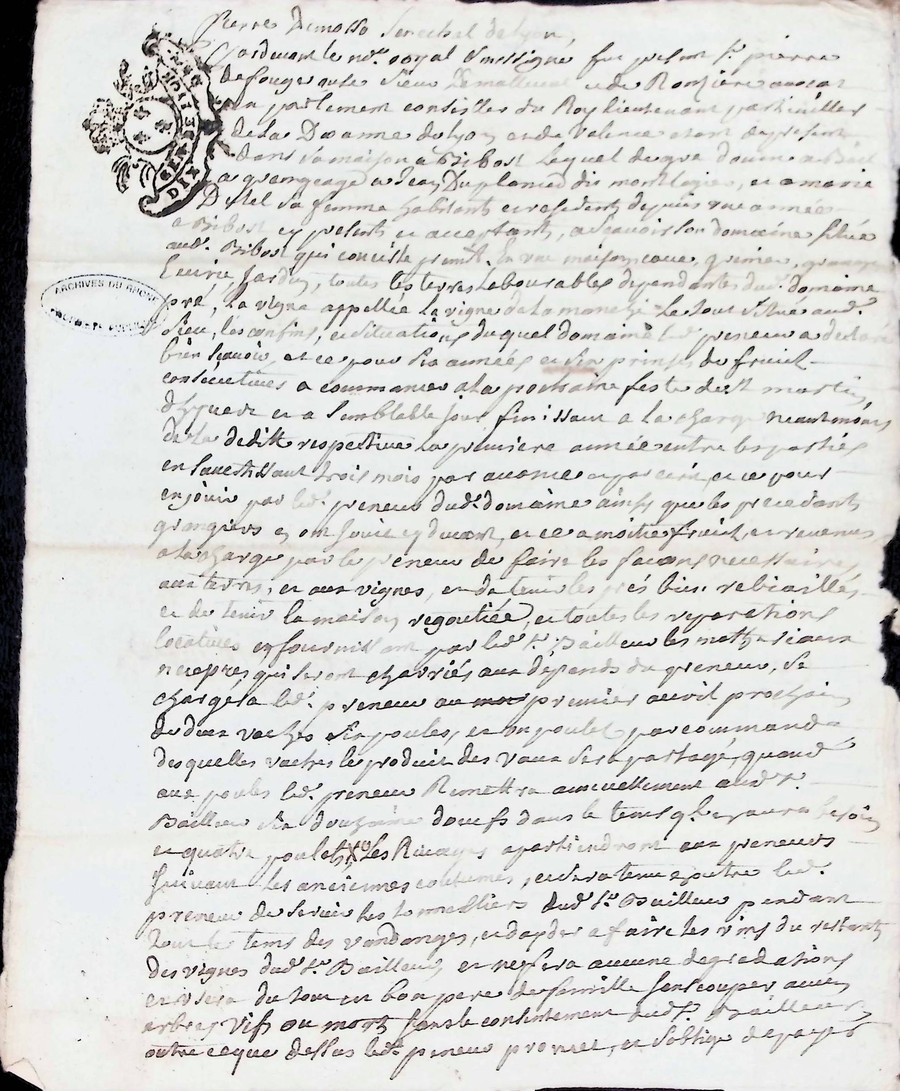 Pierre Dumosso Senechal de Lyon,
Pardevant le no.re royal soussigné fut present S.r pierre
de fougerouse sieur
en parlement conseiller du Roy lieutenant particullier
de la Doanne de Lyon et de Valence etant de present
dans sa maison a Bibost lequel de gré donne a Bail
a grangeage a Jean Duplomb dit montlogier, et a marie
sa femme habitants et residents depuis une année
a Bibost cy presents et acceptants, a scavoir son domaine situé
aud.t Bibost qui conciste prem.t En une maison cave, grange
Ecurie, Jardin, toutes les terres Labourables dependantes dud. domaine
pré, la vigne appellée la vigne de la Le tout situé aud.
lieu, les confins, et situations duquel domaine led. preneur a declaré
bien scavoir, et ce pour six années et six prinses de fruit
consecutives a commancer a la prochaine feste de S.t martin
d'hyver et a semblable jour finissant a la charge neantmoins
de la deditte respective la premiere année entre les parties
en s'avertissant trois mois par avance et par écrit, et ce pour
en jouir par led. preneur dud. domaine ainsy que les precedents
grangiers en ont jouit cy devant, et ce a moitié fruit, et revenus
a la charge par le preneur de faire les façons necessaires
aux terres, et aux vignes, et de tenir les prés bien
et de tenir la maison regoutiée, et toutes les reparations
locatives en fournissant par led. S.r Bailleur les matheriaux
necepres qui seront charriés aux depends du preneur, se
chargera led. preneur au premier avril prochain
de deux vaches six poules, et un poulet par commande
desquelles vaches le produit des vaux sera partagé, quand
aux poules led. preneur Remettra annuellement aud. S.r
Bailleur six douzaine d'oeufs dans le tems q.l en aura besoin
et quatre poulets, les apartiendront aux preneurs
suivant les anciennes coutumes, et sera tenu en outre led.
preneur de servir les tonnelliers dud. S.r Bailleur pendant
tout le tems des vandanges, et d'ayder a faire les vins du restant
des vignes dud. S.r Bailleur, et ne fera aucune degradations
et usera du tout en bon pere de famille sans couper aucun
arbres vifs ou morts sans le consentement dud. S.r Bailleur
outre ce que dessus led. preneur promet, et s'oblige de payer
GEN. DE LION
DIX
ARCHIVES DU RHONE